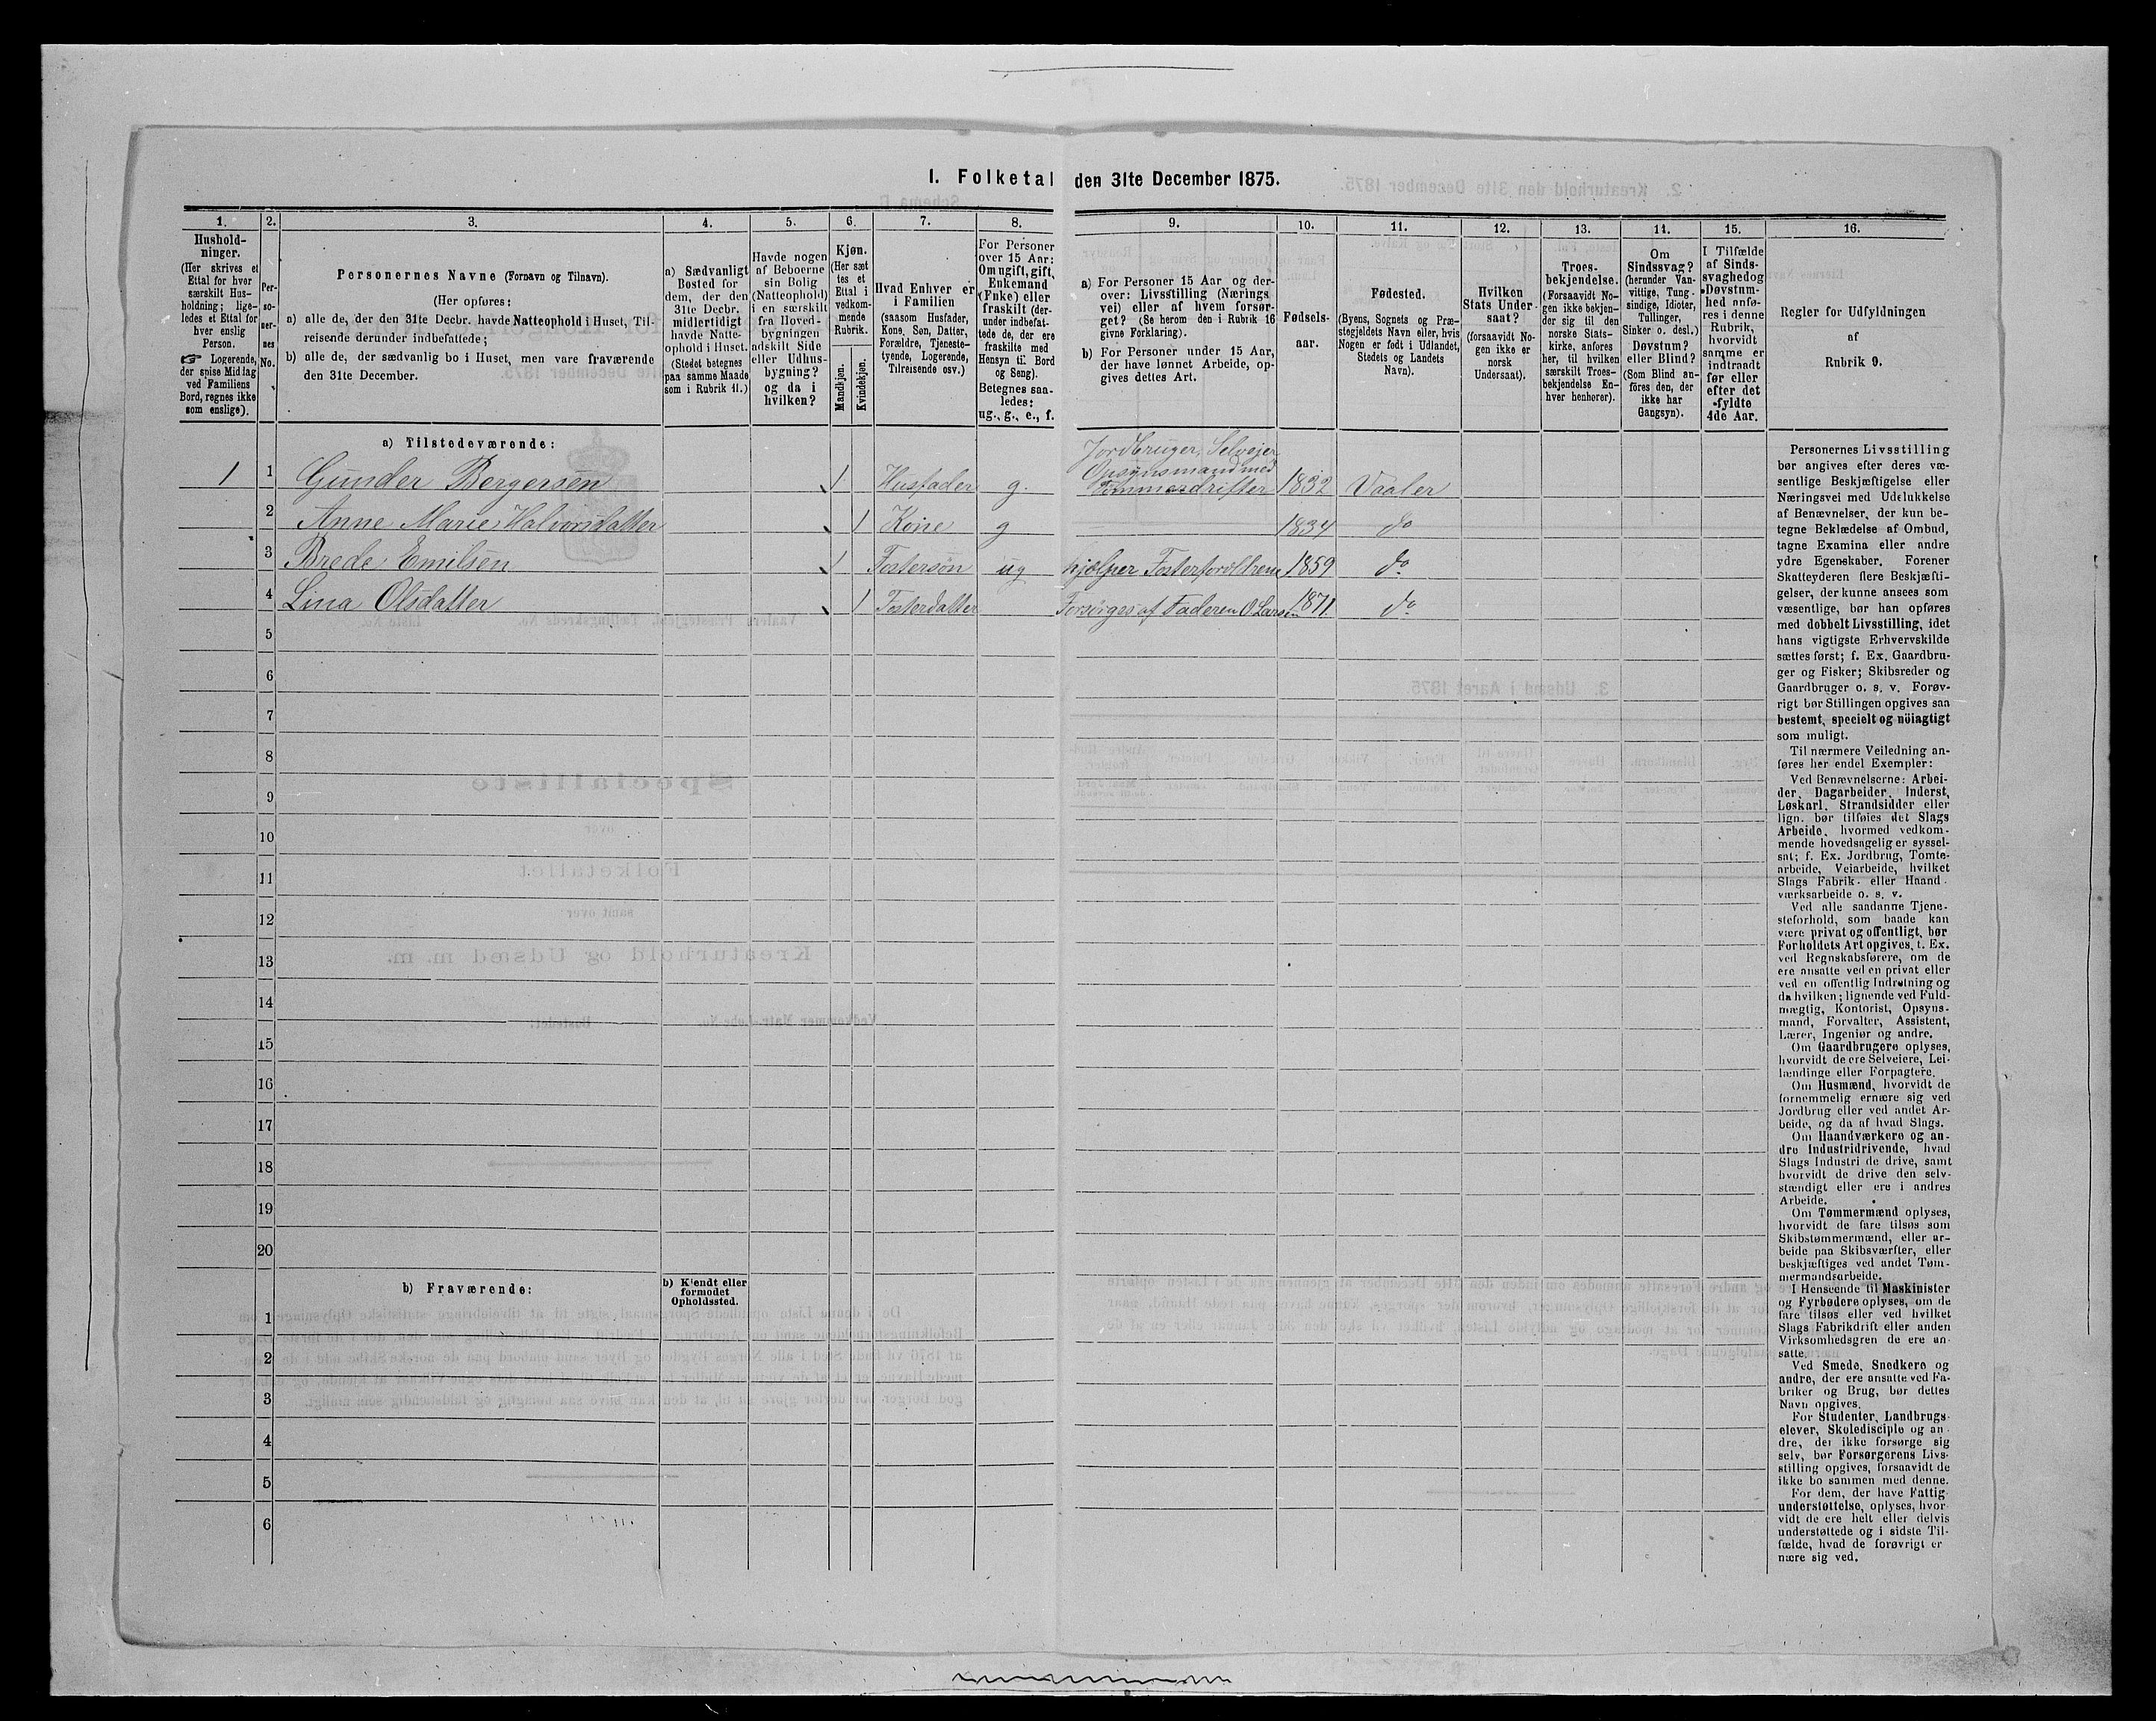 I. Folketal den 31te December 1875.
1.
Hushold-
ninger.
(Her skrives et
Ettal for hver
særskilt Hus-
holdning; lige-
ledes et Ettal for
hver enslig
Person.
☞ Logerende,
der spise Middag
ved Familiens
Bord, regnes ikke
som enslige).
2.
Per-
so-
ner-
nes
No.
3.
Personernes Navne (Fornavn og Tilnavn).
(Her opføres:
a) alle de, der den 31te Decbr. havde Natteophold i Huset, Til-
reisende derunder indbefattede;
b) alle de, der sædvanlig bo i Huset, men vare fraværende
den 31te December.
4.
a) Sædvanligt
Bosted for
dem, der den
31te Decbr.
midlertidigt
havde Natte-
ophold i Huset.
(Stedet betegnes
paa samme Maade
som i Rubrik 11.)
5.
Havde nogen
af Beboerne
sin Bolig
(Natteophold)
i en særskilt
fra Hoved-
bygningen
adskilt Side
eller Udhus-
bygning?
og da i
hvilken?
6.
Kjøn.
(Her sæt
tes et
Ettal i
vedkom-
mende
Rubrik.
Mandkjøn.
Kvindekjøn.
7.
Hvad Enhver er
i Familien
(saasom Husfader,
Kone, Søn, Datter,
Forældre, Tjeneste-
tyende, Logerende,
Tilreisende osv.)
8.
For Personer
over 15 Aar:
Om ugift, gift,
Enkemand
(Enke) eller
fraskilt (der-
under indbefat-
tede de, der ere
fraskilte med
Hensyn til Bord
og Seng).
Betegnes saa-
ledes:
ug., g., e., f.
9.
a) For Personer 15 Aar og der-
over: Livsstilling (Nærings
vei) eller af hvem forsør-
get? (Se herom den i Rubrik 16
givne Forklaring).
b) For Personer under 15 Aar,
der have lønnet Arbeide, op-
gives dettes Art.
10.
Fødsels-
aar.
11.
Fødested.
(Byens, Sognets og Præ-
stegjeldets Navn eller, hvis
Nogen er født i Udlandet,
Stedets og Landets
Navn).
12.
Hvilken
Stats Under-
saat?
(forsaavidt No-
gen ikke er
norsk
Undersaat).
13.
Troes-
bekjendelse.
(Forsaavidt No-
gen ikke bekjen-
der sig til den
norske Stats-
kirke, anføres
her, til hvilken
særskilt Troes-
bekjendelse En-
hver henhører).
14.
Om
Sindssvag?
(herunder Van-
vittige, Tung-
sindige, Idioter,
Tullinger,
Sinker o. desl.)
Døvstum?
eller Blind?
(Som Blind an-
føres den, der
ikke har
Gangsyn).
15.
I Tilfælde
af Sinds-
svaghed og
Døvstum-
hed anfø-
res i denne
Rubrik,
hvorvidt
samme er
indtraadt
før eller
efter det
fyldte
4de Aar.
16.
Regler for Udfyldningen
af
Rubrik 9.
a) Tilstedeværende:
Jordbruger, Selveier
Opsynsmand med
1 1 Gunder Bergersen 1 Husfader g. Tømmerdrifter 1832 Vaaler
2 Anne Marie Halvorsdatter 1 Kone g 1834 do
3 Brede Emilsen 1 Fostersøn ug hjælper Fosterforældrene 1859 do
4 Lina Olsdatter 1 Fosterdatter Forsørges af Faderen O Larsen 1871 do
5
6
7
8
9
10
11
12
13
14
15
16
17
18
19
20
b) Fraværende:
b) Kjendt eller
formodet
Opholdssted.
1
2
3
4
5
6
Personernes Livsstilling
bør angives efter deres væ-
sentlige Beskjæftigelse eller
Næringsvei med Udelukkelse
af Benævnelser, der kun be-
tegne Beklædelse af Ombud,
tagne Examina eller andre
ydre Egenskaber. Forener
Skatteyderen flere Beskjæfti-
gelser, der kunne ansees som
væsentlige, bør han opføres
med dobbelt Livsstilling, idet
hans vigtigste Erhvervskilde
sættes først; f. Ex. Gaardbru-
ger og Fisker; Skibsreder og
Gaardbruger o. s. v. Forøv-
rigt bør Stillingen opgives saa
bestemt, specielt og nöiagtigt
som muligt.
Til nærmere Veiledning an-
føres her endel Exempler:
Ved Benævnelserne: Arbei-
der, Dagarbeider, Inderst,
Løskarl, Strandsidder eller
lign. bør tilføies det Slags
Arbeide, hvormed vedkom-
mende hovedsagelig er syssel-
sat; f. Ex. Jordbrug, Tomte-
arbeide, Veiarbeide, hvilket
Slags Fabrik- eller Haand-
værksarbeide o. s. v.
Ved alle saadanne Tjene-
steforhold, som baade kan
være privat og offentligt, bør
Forholdets Art opgives, t. Ex.
ved Regnskabsførere, om de
ere ansatte ved en privat eller
ved en offentlig Indretning og
da hvilken; lignende ved Fuld-
mægtig, Kontorist, Opsyns-
mand, Forvalter, Assistent,
Lærer, Ingeniør og andre.
Om Gaardbrugere oplyses,
hvorvidt de ere Selveiere, Lei-
lændinge eller Forpagtere.
Om Husmænd, hvorvidt de
fornemmelig ernære sig ved
Jordbrug eller ved andet Ar-
beide, og da af hvad Slags.
Om Haandværkere og an-
dre Industridrivende, hvad
Slags Industri de drive, samt
hvorvidt de drive den selv-
stændigt eller ere i andres
Arbeide.
Om Tømmermænd oplyses,
hvorvidt de fare tilsøs som
Skibstømmermænd, eller ar-
beide paa Skibsværfter, eller
beskjæftiges ved andet Tøm-
mermandsarbeide.
I Henseende til Maskinister
og Fyrbødere oplyses, om de
fare tilsøs eller ved hvilket
Slags Fabrikdrift eller anden
Virksomhedsgren de ere an-
satte.
Ved Smede, Snedkere og
andre, der ere ansatte ved Fa-
briker og Brug, bør dettes
Navn opgives.
For Studenter, Landbrugs-
elever, Skoledisciple og an-
dre, der ikke forsørge sig
selv, bør Forsørgerens Livs-
stilling opgives, forsaavidt de
ikke bo sammen med denne.
For dem, der have Fattig-
understøttelse, oplyses, hvor-
vidt de ere helt eller delvis
understøttede og i sidste Til-
fælde, hvad de forøvrigt er-
nære sig ved.